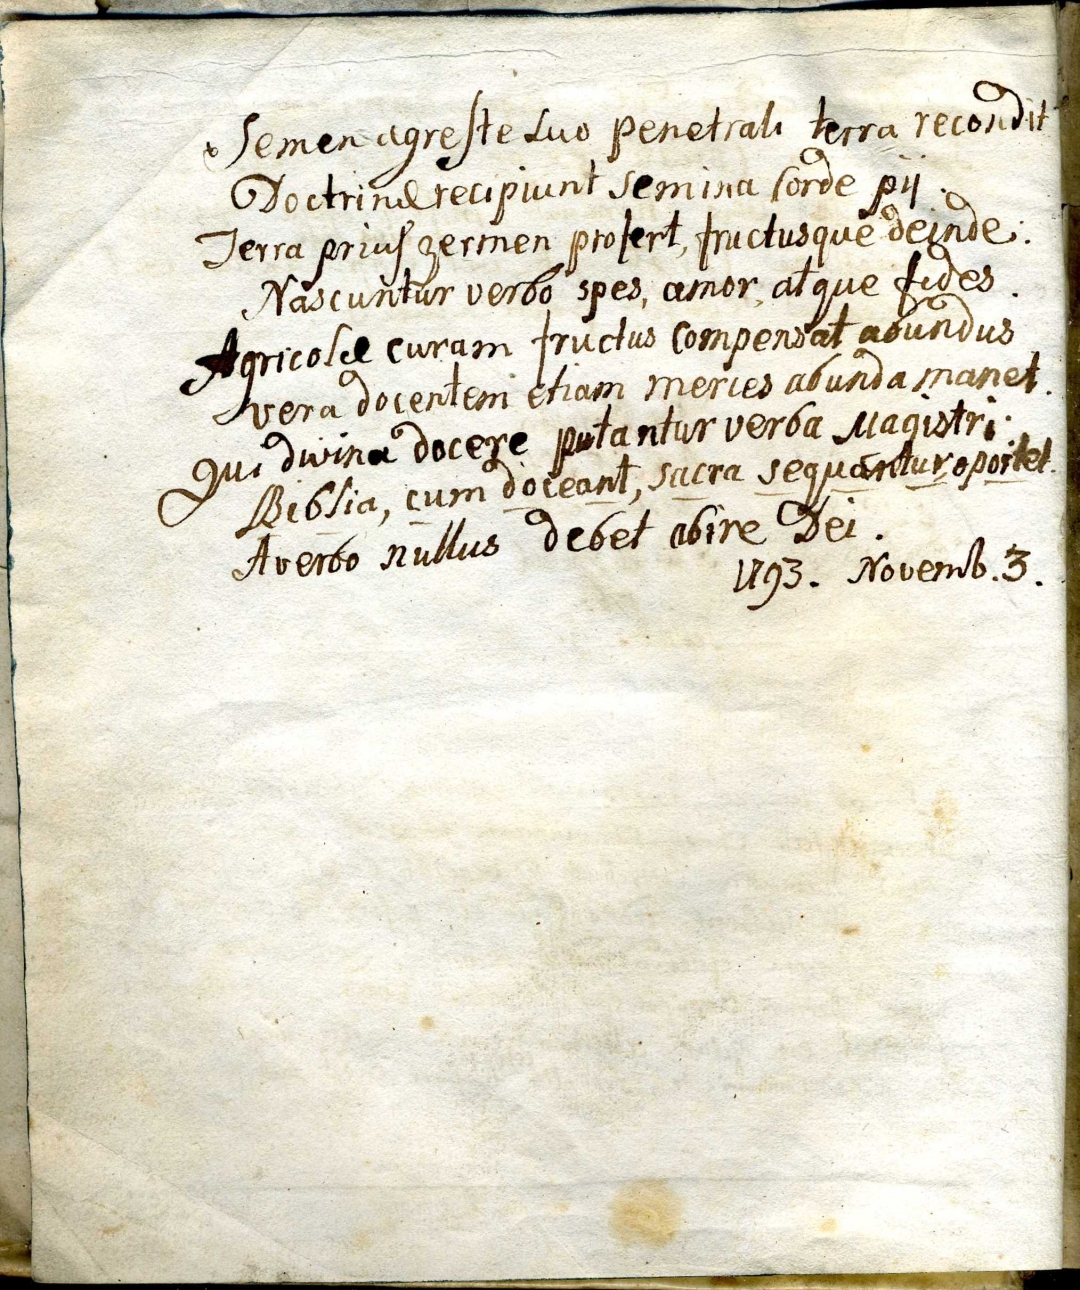 Semen agreste suo penetrali terra recondit
Doctrinæ recipiunt semina corde pij.
Terra prius germen profert, fructusque deinde:
Nascuntur verbo spes, amor, atque fides.
Agricolæ curam fructus compensat abundus
vera docentem etiam merces abunda manet.
Qui divina docere putantur verba Magistri:
Biblia, cum doceant, sacra sequantur oportet.
A verbo nullus debet abire Dei.
1793. Novemb. 3.